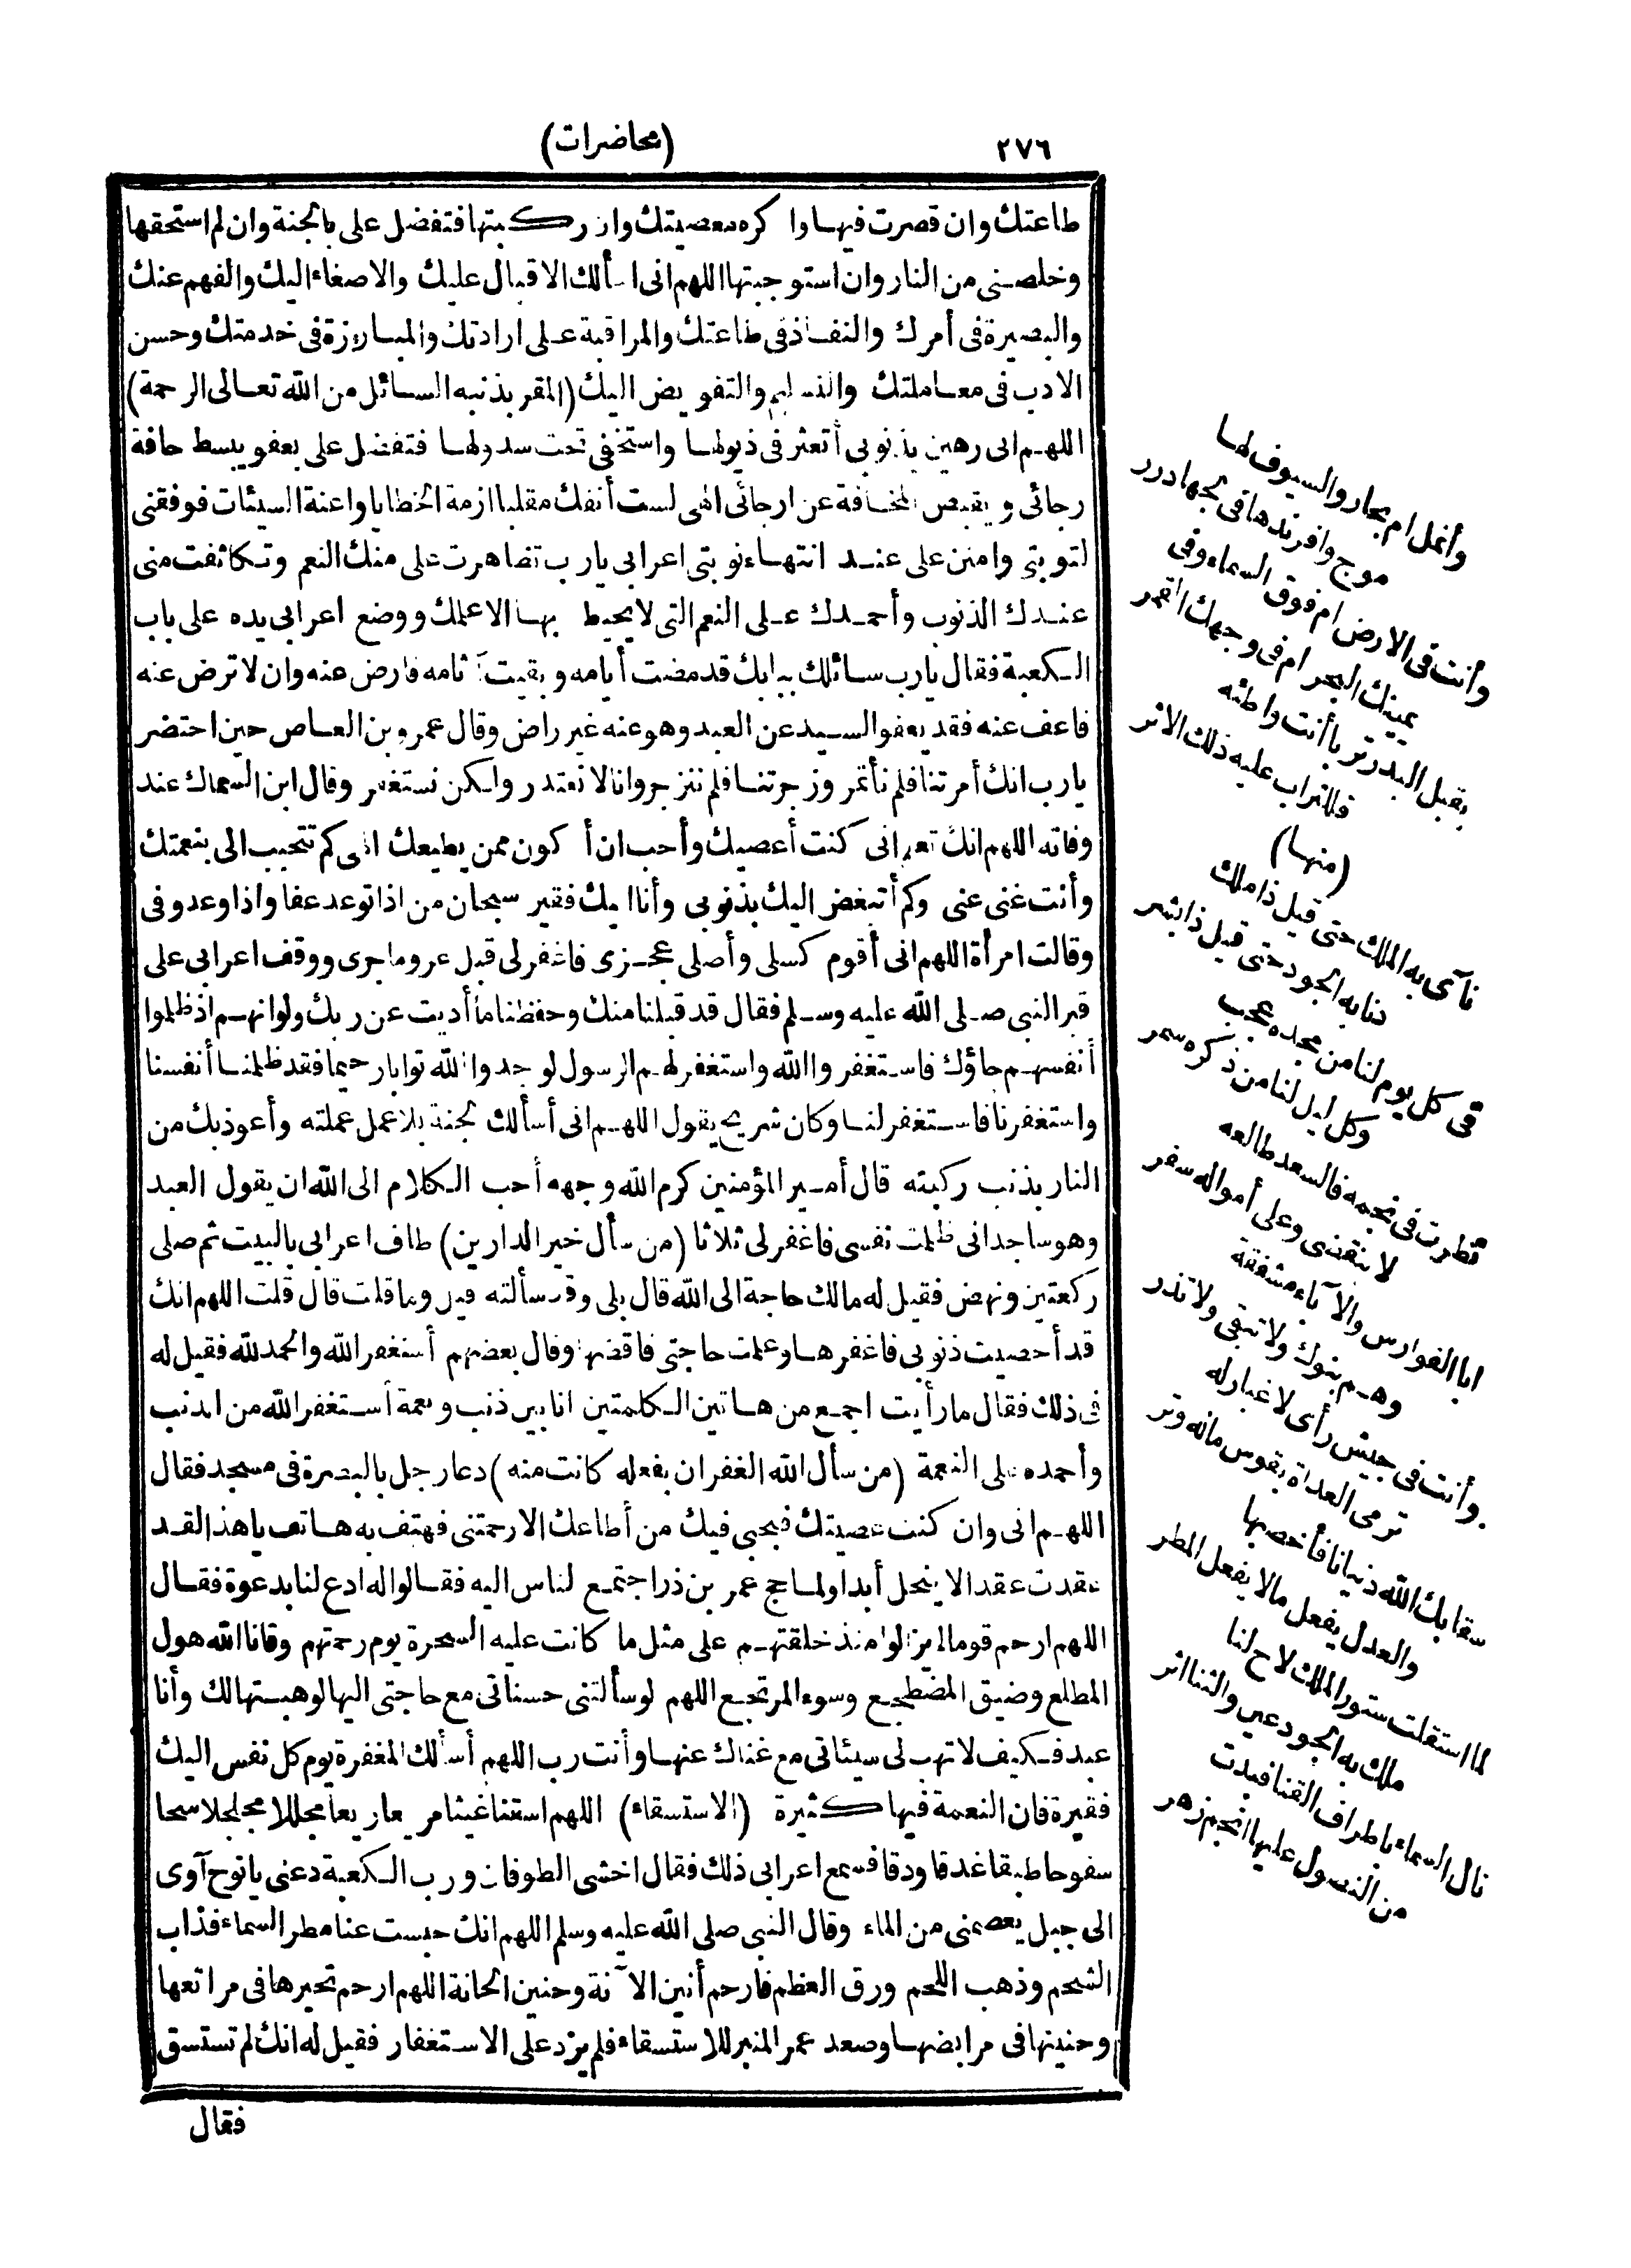 ٢٧٦
(محاضرات)
طاعتك وان قصرت فيها وا كره معصيتك وان ركبتها فتفضل على بالجنة وان لم استحقها
وخلصنى من النار وان استوجبتها اللهم انى اسألك الاقبال عليك والاصغاء اليك والفهم عنك
والبصيرة فى أمرك والنفاذ فى طاعتك والمراقبة على ارادتك والمبادرة فى خدمتك وحسن
الادب فى معاملتك والتسليم والتفويض اليك (المقر بذنبه السائل من الله تعالى الرحمة)
اللهم انى رهين بذنوبى أتعثر فى ذيولها واستخفى تحت سدولها فتفضل على بعفو يبسط حافة
رجائى ويقبض المخافة عن ارجائى الهى لست أنفك مقلبا ازمة الخطايا واعنة السيئات فوفقنى
لتوبتى وامنن على عند انتهاء نوبتى اعرابى يارب تضاهرت على منك النعم وتكاثفت منى
عندك الذنوب وأحمدك على النعم التى لا يحيط بها الاعلمك ووضع اعرابى يده على باب
الكعبة فقال يارب سائلك ببابك قد مضت أيامه وبقيت آثامه فارض عنه وان لا ترض عنه
فاعف عنه فقد يعفو السيد عن العبد وهو عنه غير راض وقال عمرو بن العاص حين احتضر
يارب انك أمرتنا فلم نأتمر وزجرتنا فلم ننزجر وانا لا نعتذر ولكن نستغفر وقال ابن السماك عند
وفاته اللهم انك تعلم انى كنت أعصيك وأحب ان أكون ممن يطيعك الهى كم تتحبب الى بنعمتك
وأنت غنى عنى وكم أتبغض اليك بذنوبى وأنا اليك فقير سبحان من اذا توعد عفا واذا وعد وفى
وقالت امرأة اللهم انى أقوم كسلى وأصلى عجزى فاغفر لى قبل عرو ما جرى ووقف اعرابى على
قبر النبى صلى الله عليه وسلم فقال قد قبلنا منك وحفظنا ما أديت عن ربك ولو انهم اذ ظلموا
أنفسهم جاؤك فاستغفروا الله واستغفر لهم الرسول لوجدوا الله توابا رحيما فقد ظلمنا أنفسنا
واستغفرنا فاستغفر لنا وكان شريح يقول اللهم انى أسألك الجنة بلا عمل عملته وأعوذ بك من
النار بذنب ركبته قال أمير المؤمنين كرم الله وجهه أحب الكلام الى الله ان يقول العبد
وهو ساجد انى ظلمت نفسى فاغفر لى ثلاثا (من سأل خير الدارين) طاف اعرابى بالبيت ثم صلى
ركعتين ونهض فقيل له مالك حاجة الى الله قال بلى وقد سألته قيل وما قلت قال قلت اللهم انك
قد أحصيت ذنوبى فاغفرها وعلمت حاجتى فاقضها وقال بعضهم أستغفر الله والحمد لله فقيل له
فى ذلك فقال ما رأيت اجمع من هاتين الكلمتين انا بين ذنب ونعمة أستغفر الله من الذنب
وأحمده على النعمة (من سأل الله الغفران بفعله كانت منه) دعا رجل بالبصرة فى مسجد فقال
اللهم انى وان كنت عصيتك فبحبى فيك من أطاعك الا رحمتنى فهتف به هاتف يا هذا لقد
عقدت عقدا لا ينحل أبدا ولما حج عمر بن ذر اجتمع الناس اليه فقالوا له ادع لنا بدعوة فقال
اللهم ارحم قوما لم يزالوا منذ خلقتهم على مثل ما كانت عليه السحرة يوم رحمتهم وقانا الله هول
المطلع وضيق المضطجع وسوء المرتجع اللهم لو سألتنى حسناتى مع حاجتى اليها لوهبتها لك وأنا
عبد فكيف لا تهب لى سيئاتى مع غناك عنها وأنت رب اللهم أسألك المغفرة يوم كل نفس اليك
فقيرة فان النعمة فيها كثيرة (الاستسقاء) اللهم اسقنا غيثا مريعا ريعا مجللا مجلجلا سحا
سفوحا طبقا غدقا ودقا فسمع اعرابى ذلك فقال اخشى الطوفان ورب الكعبة دعنى يا نوح آوى
الى جبل يعصمنى من الماء وقال النبى صلى الله عليه وسلم اللهم انك حبست عنا مطر السماء فذاب
الشحم وذهب اللحم ورق العظم فارحم أنين الآنة وحنين الحانة اللهم ارحم تحيرها فى مراتعها
وحنينها فى مرابضها وصعد عمر المنبر للاستسقاء فلم يزد على الاستغفار فقيل له انك لم تستسق
فقال
وأنمل ام بحار والسيوف لها
موج وافرندها فى لجها درر
وأنت فى الارض ام فوق السماء وفى
يمينك البحر ام فى وجهك القمر
يقبل البدر تربا أنت واطئه
فللتراب عليه ذلك الاثر
(منها)
نأى به الملك حتى قيل ذا ملك
دنا به الجود حتى قيل ذا بشر
فى كل يوم لنا من مجده عجب
وكل ليل لنا من ذكره سمر
قطرت فى نجمه فالسعد طالعه
لا ينقضى وعلى أمواله سفر
ابا الفوارس والآباء مشفقة
وهم بنوك ولا تبقى ولا تذر
وأنت فى جيش رأى لا غبار له
ترمى العداة بقوس ماله وتر
سقا بك الله دنيانا فأخصبها
والعدل يفعل مالا يفعل المطر
لما استقلت ستور الملك لاح لنا
ملك به الجود عين والثنا اثر
نال السماء باطراف القنا فبدت
من النصول عليها انجم زهر